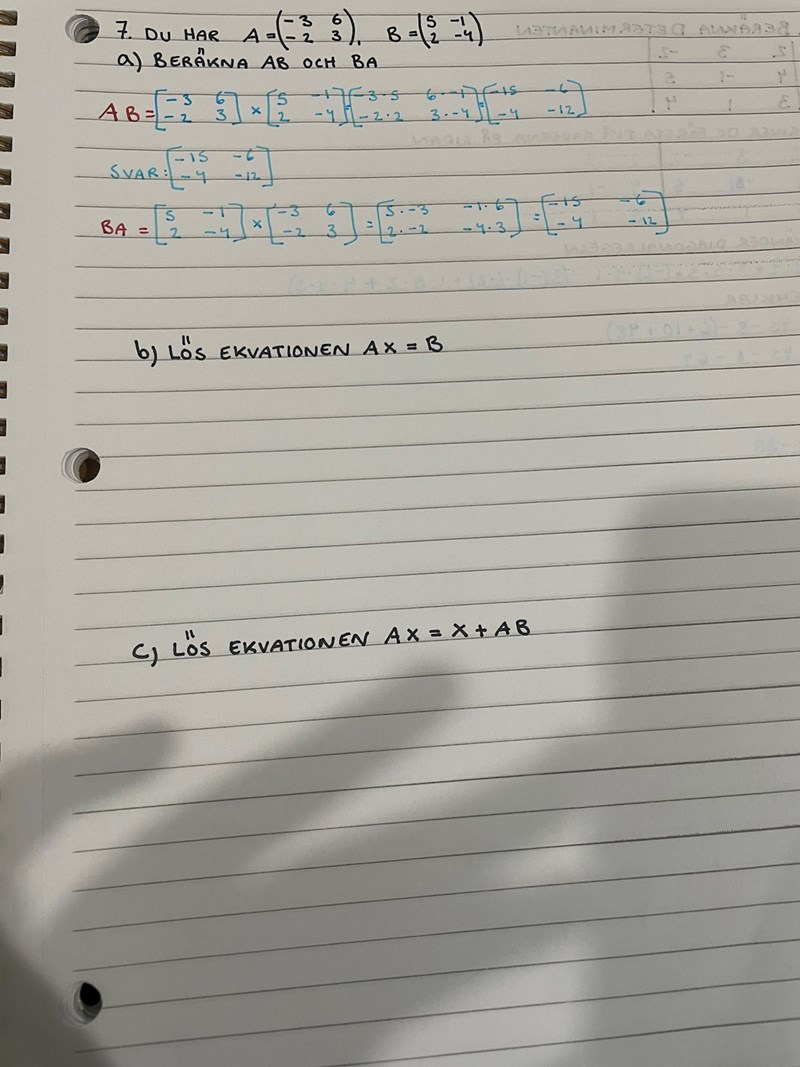 7. DU HAR A=(-3 6 -2 3), B=(5 -1 2 -4)
a) BERÄKNA AB OCH BA
AB=[-3 6 -2 3] × [5 -1 2 -4]=[-3·5 6·-1 -2·2 3·-4]=[-15 -6 -4 -12]
SVAR:[-15 -6 -4 -12]
BA=[5 -1 2 -4] × [-3 6 -2 3]=[5·-3 -1·6 2·-2 -4·3]=[-15 -6 -4 -12]
b) LÖS EKVATIONEN AX=B
c) LÖS EKVATIONEN AX=X+AB